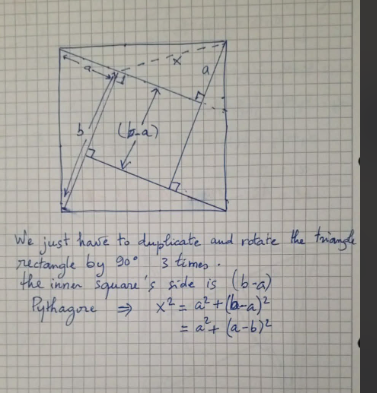 a
x
a
b
(b-a)
We just have to duplicate and rotate the triangle
rectangle by 90° 3 times.
the inner square's side is (b-a)
Pythagore ⇒ x² = a² + (b-a)²
= a² + (a-b)²